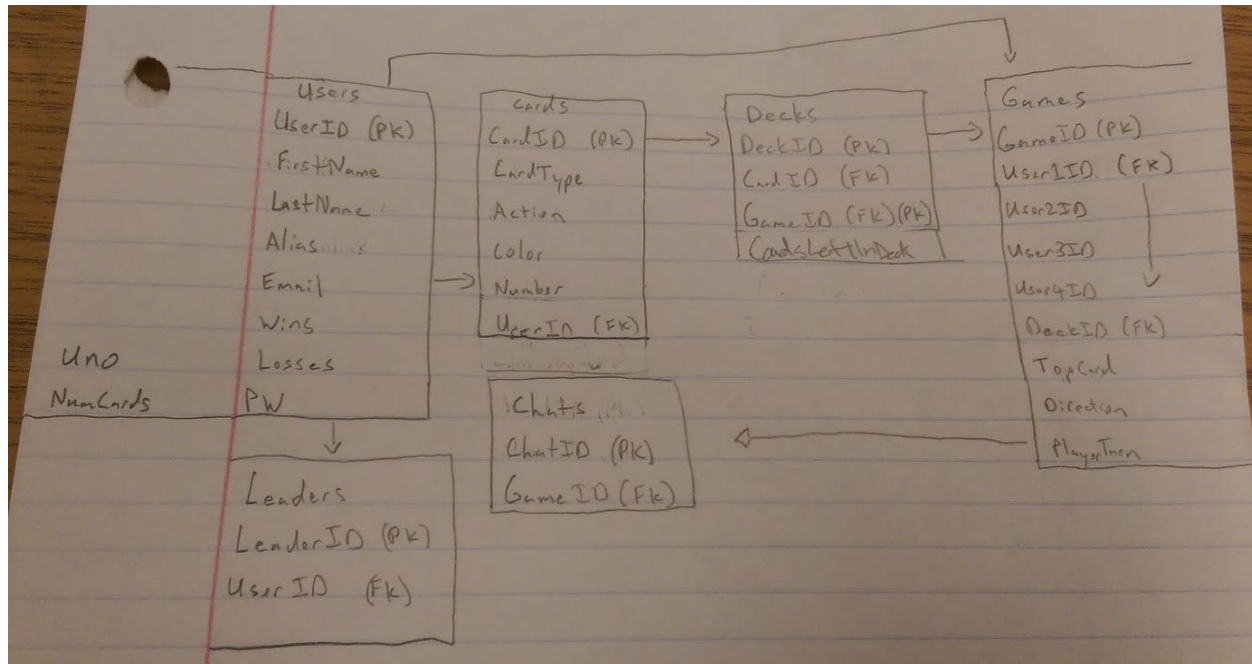 Users
UserID (PK)
FirstName
LastName
Alias
Email
Wins
Losses
PW
Uno
NumCards
Cards
CardID (PK)
CardType
Action
Color
Number
UserID (FK)
Decks
DeckID (PK)
CardID (FK)
GameID (FK)(PK)
CardsLeftInDeck
Games
GameID (PK)
User1ID (FK)
User2ID
User3ID
User4ID
DeckID (FK)
TopCard
Direction
PlayerTurn
Chats
ChatID (PK)
GameID (FK)
Leaders
LeaderID (PK)
UserID (FK)